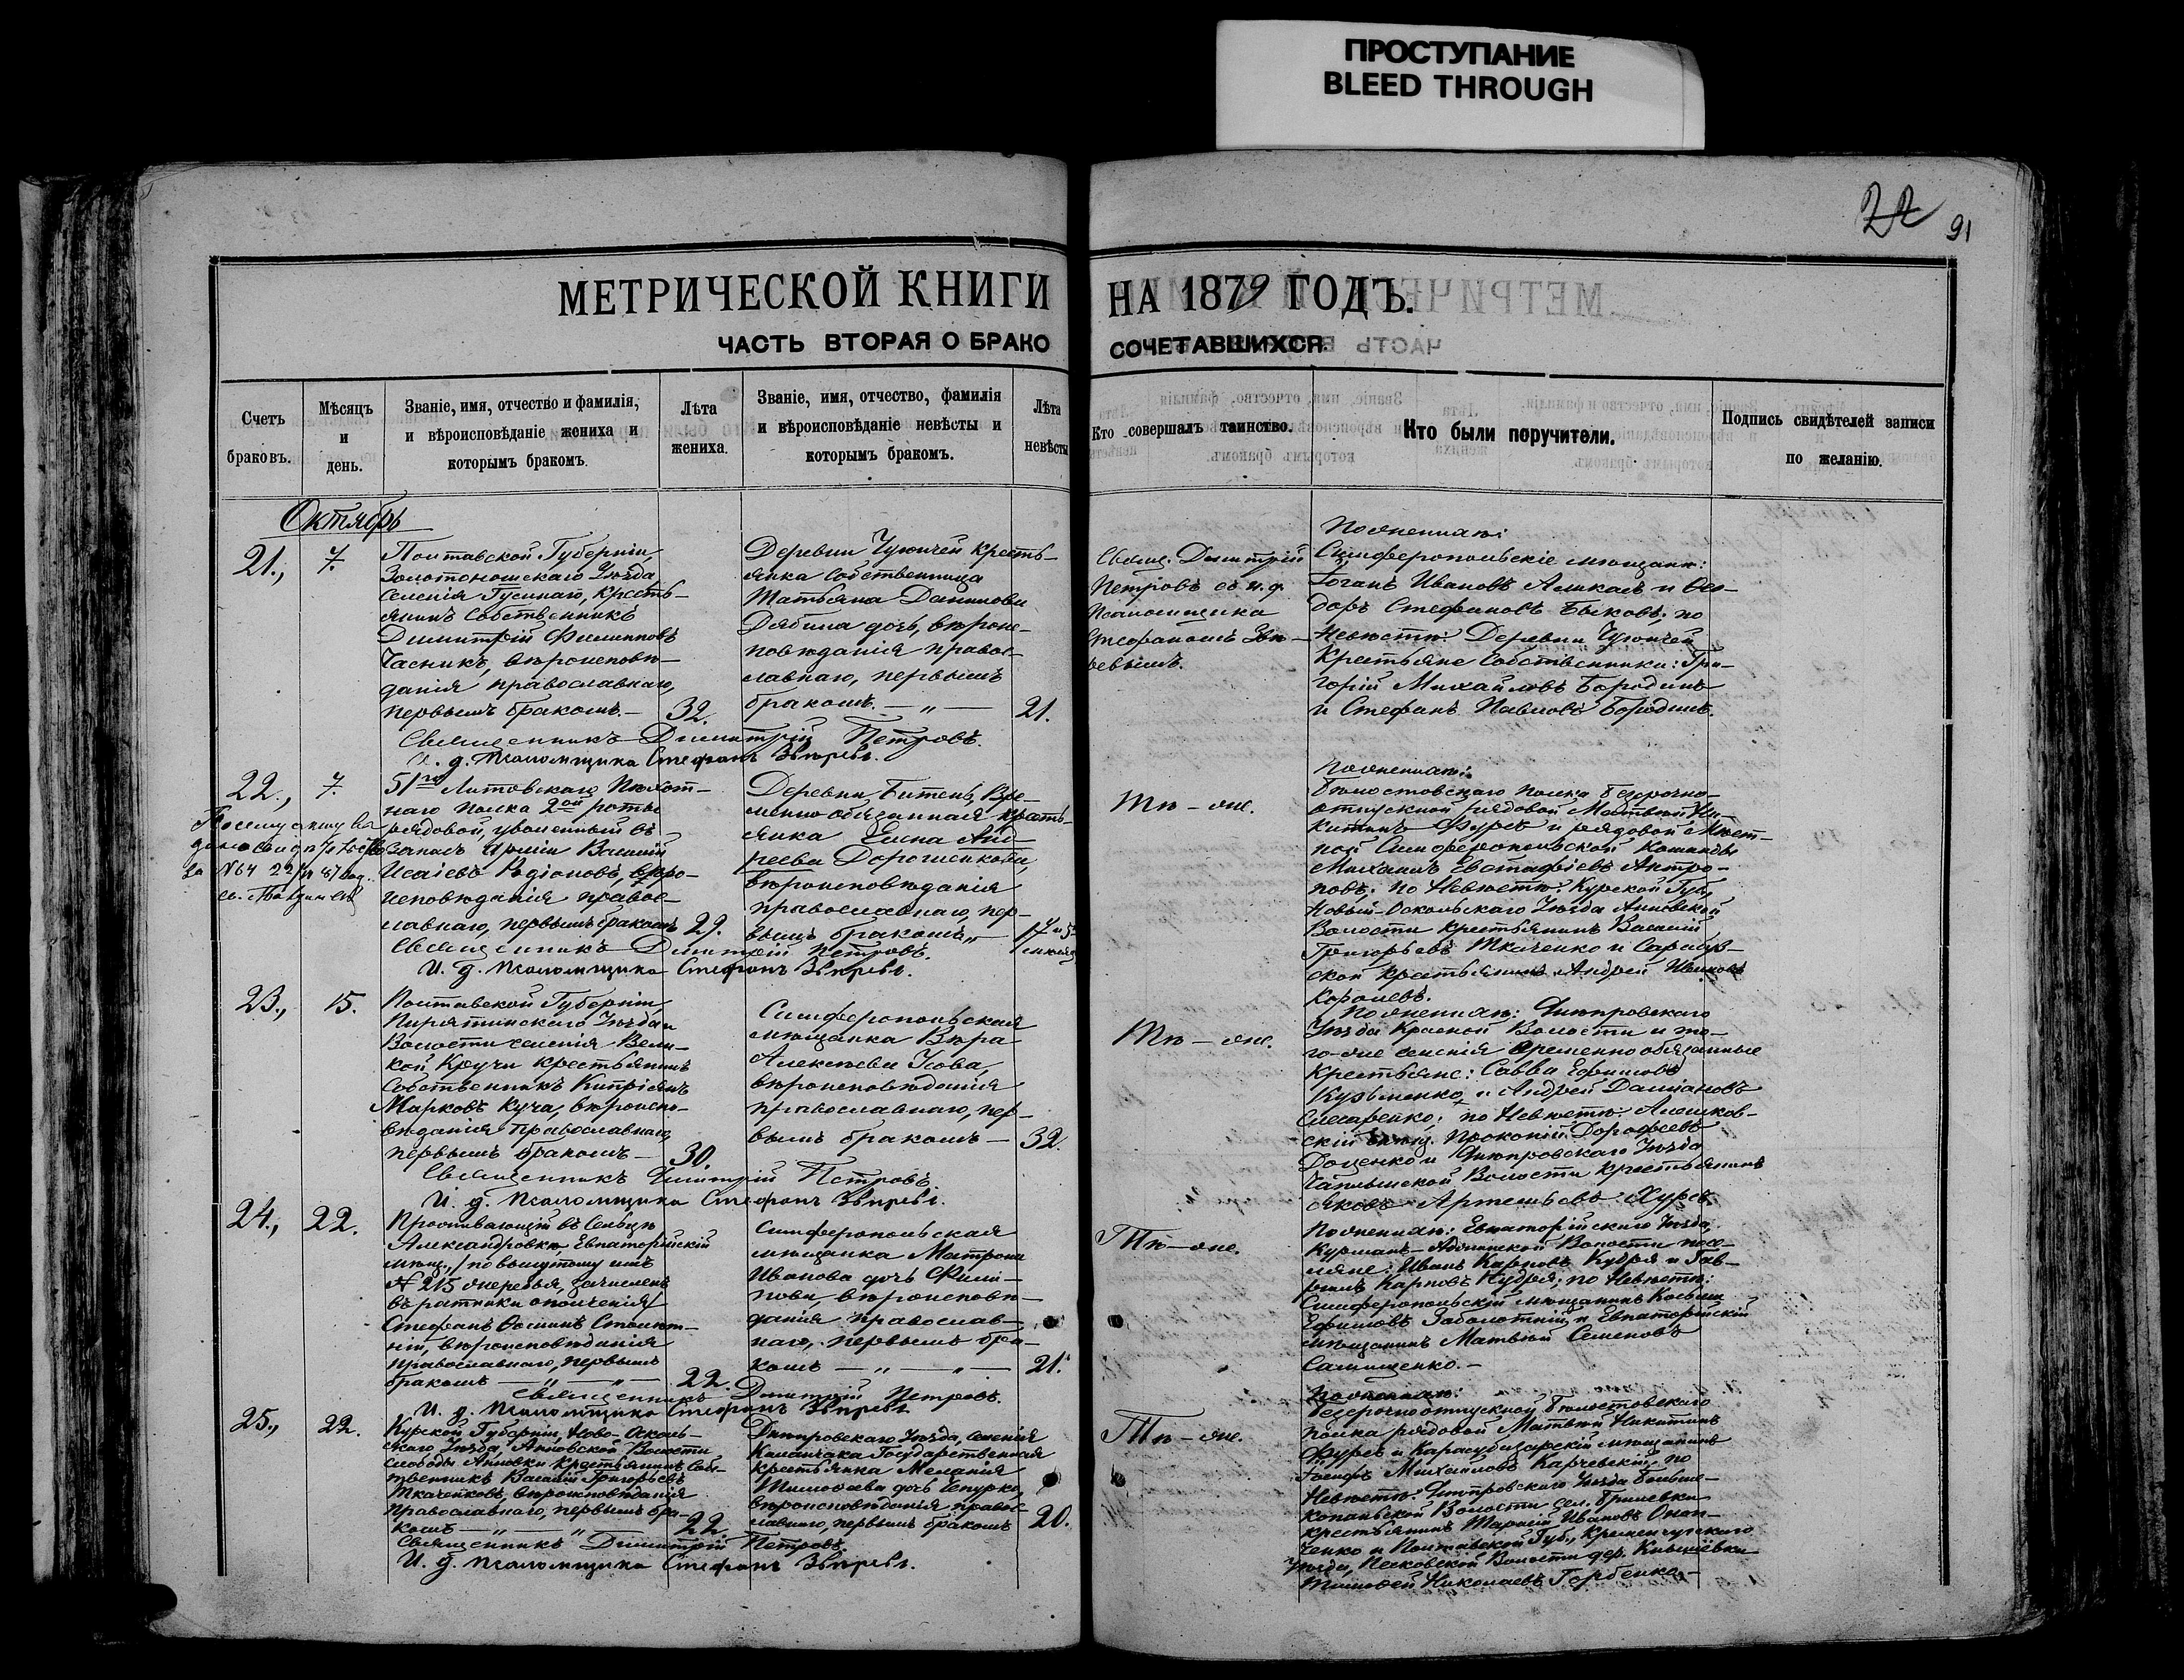 ПРОСТУПАНИЕ
BLEED THROUGH
22 91
МЕТРИЧЕСКОЙ КНИГИ НА 1879 ГОДЪ.
ЧАСТЬ ВТОРАЯ О БРАКО СОЧЕТАВШИХСЯ.
Счетъ браковъ.
Мѣсяцъ и день.
Званіе, имя, отчество и фамилія,
и вѣроисповѣданіе жениха и
которымъ бракомъ.
Лѣта
жениха.
Званіе, имя, отчество, фамилія
и вѣроисповѣданіе невѣсты и
которымъ бракомъ.
Лѣта
невѣсты
Кто совершалъ таинство.
Кто были поручители.
Подпись свидѣтелей записи
по желанію.
Октябрь
21., 7.
Полтавской Губерніи,
Золотоношскаго Уѣзда
Селенія Гусинаго, кресть-
янинъ собственникъ
Димитрій Филипповъ
Часникъ, вѣроисповѣ-
данія православнаго,
первымъ бракомъ.—
32.
Деревни Чуюнчей кресть-
янка собственница
Татьяна Данилова
Дябина дочь, вѣроис-
повѣданія правос-
лавнаго, первымъ
бракомъ. — „ —
21.
Свящ. Димитрій
Петровъ съ и. д.
Псаломщика
Стефаномъ Звѣ-
ревымъ.
По женихѣ:
Симферопольскіе мѣщане:
Іоганъ Ивановъ и Ѳео-
доръ Стефановъ Быковъ; по
Невѣстѣ: Деревни Чуюнчей
Крестьяне собственники: Гри-
горій Михайловъ Бородинъ
и Стефанъ Павловъ Бородинъ.
Священникъ Димитрій Петровъ.
И. д. Псаломщика Стефанъ Звѣревъ.
22., 7.
51го Литовскаго Пѣхот-
наго полка 2ой роты
рядовой, уволенный въ
запасъ арміи Василій
Исаіевъ Родіоновъ, вѣро-
исповѣданія правос-
лавнаго, первымъ бракомъ
29.
за №64
Деревни Битень, Вре-
менно обязанная кресть-
янка Елена Анд-
реева Дорошенкова,
вѣроисповѣданія
православнаго, пер-
вымъ бракомъ „
17
Тѣ-же.
По женихѣ:
Бѣлостокскаго полка безсрочно-
отпускной рядовой Матвѣй Ни-
китинъ Фурсъ и рядовой Мѣст-
ной Симферопольской Команды
Михаилъ Евстафіевъ Антро-
повъ; по Невѣстѣ: Курской Губ.,
Новый-Оскольскаго Уѣзда Анновской
Волости крестьянинъ Василій
Григорьевъ Ткаченко и
крестьянинъ Андрей Ивановъ
Королевъ.
Священникъ Димитрій Петровъ.
И. д. Псаломщика Стефанъ Звѣревъ.
23., 15.
Полтавской Губерніи,
Пирятинскаго Уѣзда
Волости селенія Вели-
кой Кручи крестьянинъ
Собственникъ Кипріянъ
Марковъ Куча, вѣроиспо-
вѣданія Православнаго,
первымъ бракомъ—
30.
Симферопольская
мѣщанка Вѣра
Алексѣева Усова,
вѣроисповѣданія
православнаго, пер-
вымъ бракомъ —
32.
Тѣ-же.
По женихѣ: Днѣпровскаго
Уѣзда Красной Волости и то-
го-же селенія временно обязанные
Крестьяне: Савва Ефимовъ
Кузьменко и Андрей Даміановъ
Слюсаренко; по Невѣстѣ: Алешков-
скій мѣщ. Прокопій Дорофеевъ
Доценко и Днѣпровскаго Уѣзда
Чаплынской Волости крестьянинъ
Яковъ Артемьевъ Хурсъ
Священникъ Димитрій Петровъ.
И. д. Псаломщика Стефанъ Звѣревъ.
24., 22.
Проживающій въ Сельцѣ
Александровкѣ, Евпаторійскій
мѣщ., /по вынутому имъ
№ 215 жеребья, зачисленъ
въ ратники ополченія/
Стефанъ Ѳоминъ
вѣроисповѣданія
православнаго, первымъ
бракомъ — „ — „ —
22.
Симферопольская
мѣщанка Матрона
Иванова дочь Филип-
пова, вѣроисповѣ-
данія православ-
наго, первымъ бра-
комъ — „ — „ —
21.
Тѣ-же.
По женихѣ: Евпаторійскаго Уѣзда,
Курманъ- Волости посе-
ляне: Иванъ Карповъ Кудря и Гав-
ріилъ Карповъ Кудря; по Невѣстѣ:
Симферопольскій мѣщанинъ Косьма
Ефимовъ Заболотній и Евпаторійскій
мѣщанинъ Матвѣй Семеновъ
Самищенко.—
Священникъ Димитрій Петровъ.
И. д. Псаломщика Стефанъ Звѣревъ.
25., 22.
Курской Губерніи, Ново-Осколь-
скаго Уѣзда, Анновской Волости
слободы Анновки крестьянинъ Собс-
твенникъ Василій Григорьевъ
Ткаченковъ, вѣроисповѣданія
Православнаго, первымъ бра-
комъ — „ — „
22.
Днѣпровскаго Уѣзда, селенія
Каланчака Государственная
крестьянка Меланія
Тимофеева дочь Чепурко,
вѣроисповѣданія правос-
лавнаго, первымъ бракомъ
20.
Тѣ-же.
По женихѣ:
Безсрочноотпускной Бѣлостокскаго
полка рядовой Матвѣй Никитинъ
Фурсъ и Карасубазарскій мѣщанинъ
Іосифъ Михаиловъ Карчевскій, по
Невѣстѣ: Днѣпровскаго Уѣзда Больше-
копаньской Волости сел. Бриневки
крестьянинъ Тарасій Ивановъ Оноп-
ченко и Полтавской Губ., Кременчугскаго
Уѣзда, Песковской Волости дер. Кивашевки
Тимофей Николаевъ Горбенко.—
Священникъ Димитрій Петровъ.
И. д. Псаломщика Стефанъ Звѣревъ.